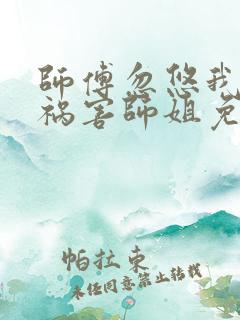 師傅忽悠我
祸害師姐免
帕拉東
未经同意禁止转载